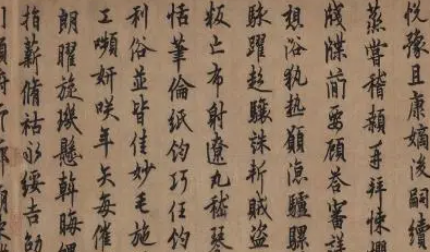 悅豫且康嫡後嗣續
蒸嘗稽顙再拜悚懼
牋牒簡要顧答審詳
想浴執熱願涼驢騾
駭躍超驤誅斬賊盜
叛亡布射遼丸嵇琴
恬筆倫紙鈞巧任釣
利俗並皆佳妙毛施
工嚬妍咲年矢每催
朗曜旋璣懸斡晦魄
指薪脩祜永綏吉劭
引領俯仰廊廟束